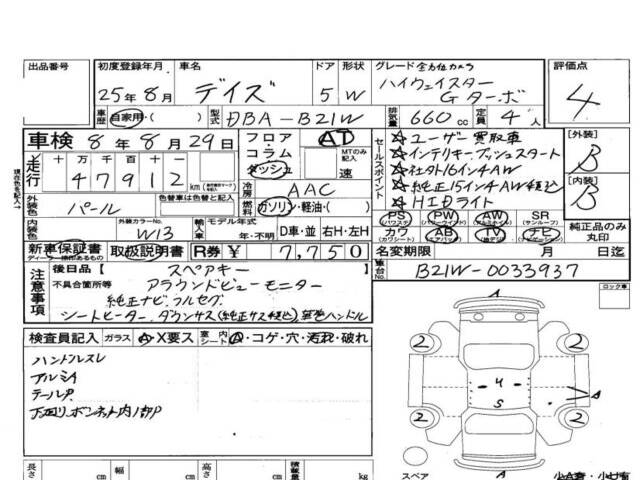 出品番号 初度登録年月 車名 ドア 形状 グレード 全方位カメラ 評価点
25年8月 デイズ 5 W ハイウェイスター Gターボ 4
車歴 自家用・( ) 型式 DBA-B21W 排気量 660cc 定員 4人
車検 8年8月29日 フロア コラム ダッシュ AT MTのみ記入 速
走行 十万千百十 47912 km
セールスポイント ☆ユーザー買取車
☆インテリキー プッシュスタート
☆社外16インチAW
☆純正15インチAW積込
☆HIDライト
[外装] B
[内装] B
冷房 AAC
外装色 パール 色替車は色替と記入 燃料 ガソリン・軽油・( )
PS (パワステ) PW (パワーウインド) AW (アルミホイール) SR (サンルーフ)
カワ (カワシート) AB (エアバッグ) TV (地デジ) ナビ (ナビゲーション) 純正品のみ丸印
内装色 外装カラーNo. W13 輸入車 モデル年式 年・不明 D車・並 右H・左H
新車保証書 ディーラー操作あるもの 取扱説明書 R券 ¥ 7,750 名変期限 月 日迄
注意事項 後日品【 スペアキー 車台No. B21W-0033937
不具合箇所等 アラウンドビューモニター
純正ナビ フルセグ
シートヒーター、ダウンサス(純正サス積込)、革巻ハンドル
ロック車
検査員記入 ガラス A・X要ス 室内シート A・コゲ・穴・汚れ・破れ
ハンドルスレ
アルミA
テールP
下廻り、ボンネット内1部P
A
2 2
4
S A
2 2
A
スペア
長さ cm 幅 cm 高さ cm 積載量 kg